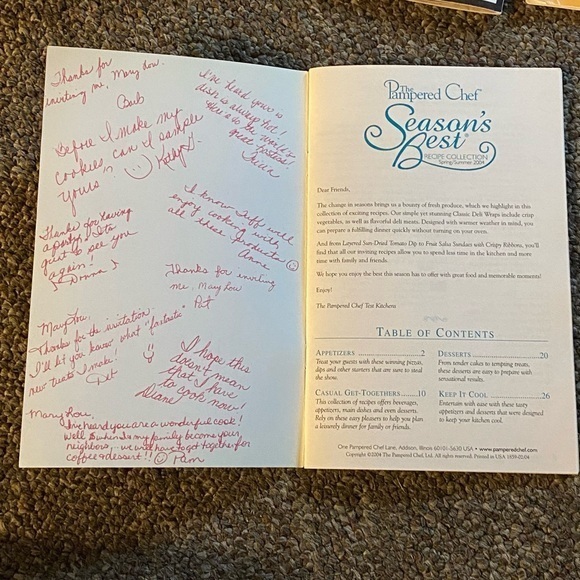 Thanks for
inviting me, Mary Lou.
Barb
Before I make my
cookies, can I sample
yours?
Kathy G.
I've heard yours is
dish is always hot!
Here's to the
great parties!
I know Jeff will
enjoy cooking with
all these products
Anne
Thanks for having
a party. Its
great to see you
again!
Donna J
Thanks for inviting
me, Mary Lou
Pat
Mary Lou,
Thanks for the invitation
I'll let you know what "fantastic"
new treats I make!
I hope this
doesn't mean
that I have
to cook now!
Diane
Mary Lou,
I've heard you are a wonderful cook!
Well when my family become your
neighbors, we will have to get together for
coffee & dessert!! Kim
The
Pampered Chef®
Season's
Best®
RECIPE COLLECTION
Spring/Summer 2004
Dear Friends,
The change in seasons brings us a bounty of fresh produce, which we highlight in this
collection of exciting recipes. Our simple yet stunning Classic Deli Wraps include crisp
vegetables, as well as flavorful deli meats. Designed with warmer weather in mind, you
can prepare a fulfilling dinner quickly without turning on your oven.
And from Layered Sun-Dried Tomato Dip to Fruit Salsa Sundaes with Crispy Ribbons, you'll
find that all our inviting recipes allow you to spend less time in the kitchen and more
time with family and friends.
We hope you enjoy the best this season has to offer with great food and memorable moments!
Enjoy!
The Pampered Chef Test Kitchens
TABLE OF CONTENTS
APPETIZERS ..................2
Treat your guests with these winning pizzas,
dips and other starters that are sure to steal
the show.
CASUAL GET-TOGETHERS......10
This collection of recipes offers beverages,
appetizers, main dishes and even desserts.
Rely on these easy pleasers to help you plan
a leisurely dinner for family or friends.
DESSERTS ....................20
From tender cakes to tempting treats,
these desserts are easy to prepare with
sensational results.
KEEP IT COOL ................26
Entertain with ease with these tasty
appetizers and desserts that were designed
to keep your kitchen cool.
One Pampered Chef Lane, Addison, Illinois 60101-5630 USA • www.pamperedchef.com
Copyright ©2004 The Pampered Chef, Ltd. All rights reserved. Printed in USA 1859-02/04